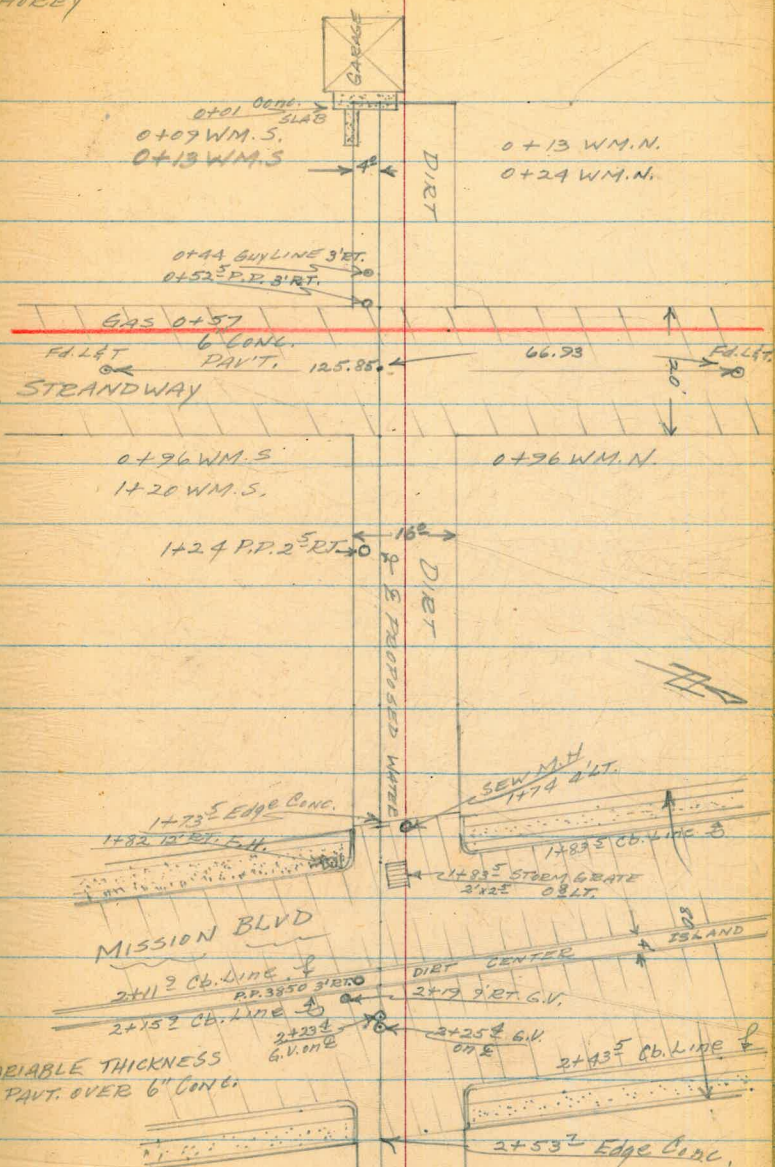 GARAGE
0+01 Conc. SLAB
0+09 WM.S.
0+13 WM.S
0+13 WM.N.
0+24 WM.N.
4⁰
DIRT
0+44 GUY LINE 3'RT.
0+52⁵ P.P. 3'RT.
GAS 0+57
6" CONC.
PAV'T.
Fd. L&T
125.85
66.93
Fd. L&T.
20'
STRANDWAY
0+96 WM.S
1+20 WM.S.
0+96 WM.N.
16⁰
1+24 P.P. 2⁵ RT.
DIRT
PROPOSED WATER
SEW M.H
1+74 4'LT.
1+73⁵ Edge Conc.
1+82 12' RT. F.H.
1+83⁵ Cb. Line
1+83⁵ STORM GRATE
2'x2⁵ 0⁸ LT.
MISSION BLVD
80'
4'
DIRT CENTER ISLAND
2+11⁹ Cb. Line
P.P. 3850 3'RT.
2+19 9'RT. G.V.
2+15⁹ Cb. Line
2+23⁴
G.V. on ℄
2+25⁴ G.V.
on ℄
2+43⁵ Cb. Line
RIABLE THICKNESS
PAVT. OVER 6" CONC.
2+53⁷ Edge Conc.